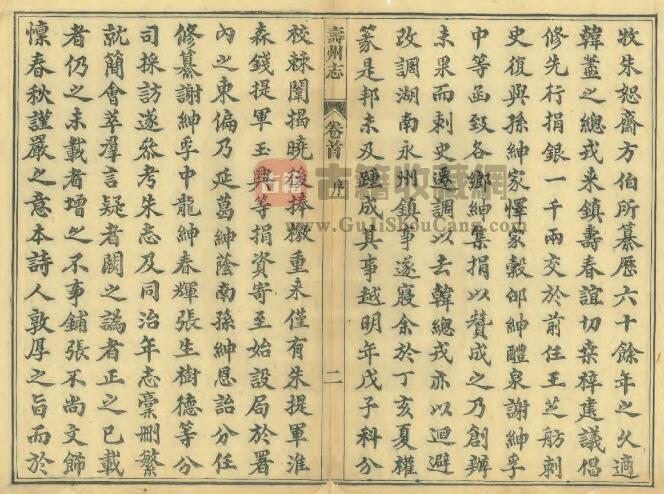 牧朱恕齋方伯所纂歷六十餘年之久適
韓藎之總戎來鎮壽春誼切桑梓建議倡
修先行捐銀一千兩交於前任王芝舫刺
史復與孫紳家懌家穀邰紳醴泉謝紳孚
中等函致各鄉紳集捐以贊成之乃創辦
未果而刺史遷調以去韓總戎亦以迴避
改調湖南永州鎮事遂寢余於丁亥夏權
篆是邦未及踵成其事越明年戊子科分
壽州志
卷首
序
二
校棘闈揭曉後捧檄重來僅有朱提軍淮
森錢提軍玉興等捐資寄至始設局於署
內之東偏乃延葛紳蔭南孫紳恩詒分任
修纂謝紳孚中龍紳春輝張生樹德等分
司採訪遂叅考朱志及同治年志稾刪繁
就簡會萃羣言疑者闕之譌者正之已載
者仍之未載者增之不事鋪張不尚文飾
懍春秋謹嚴之意本詩人敦厚之旨而於
古籍
古籍收藏网
www.GuJiShouCang.com